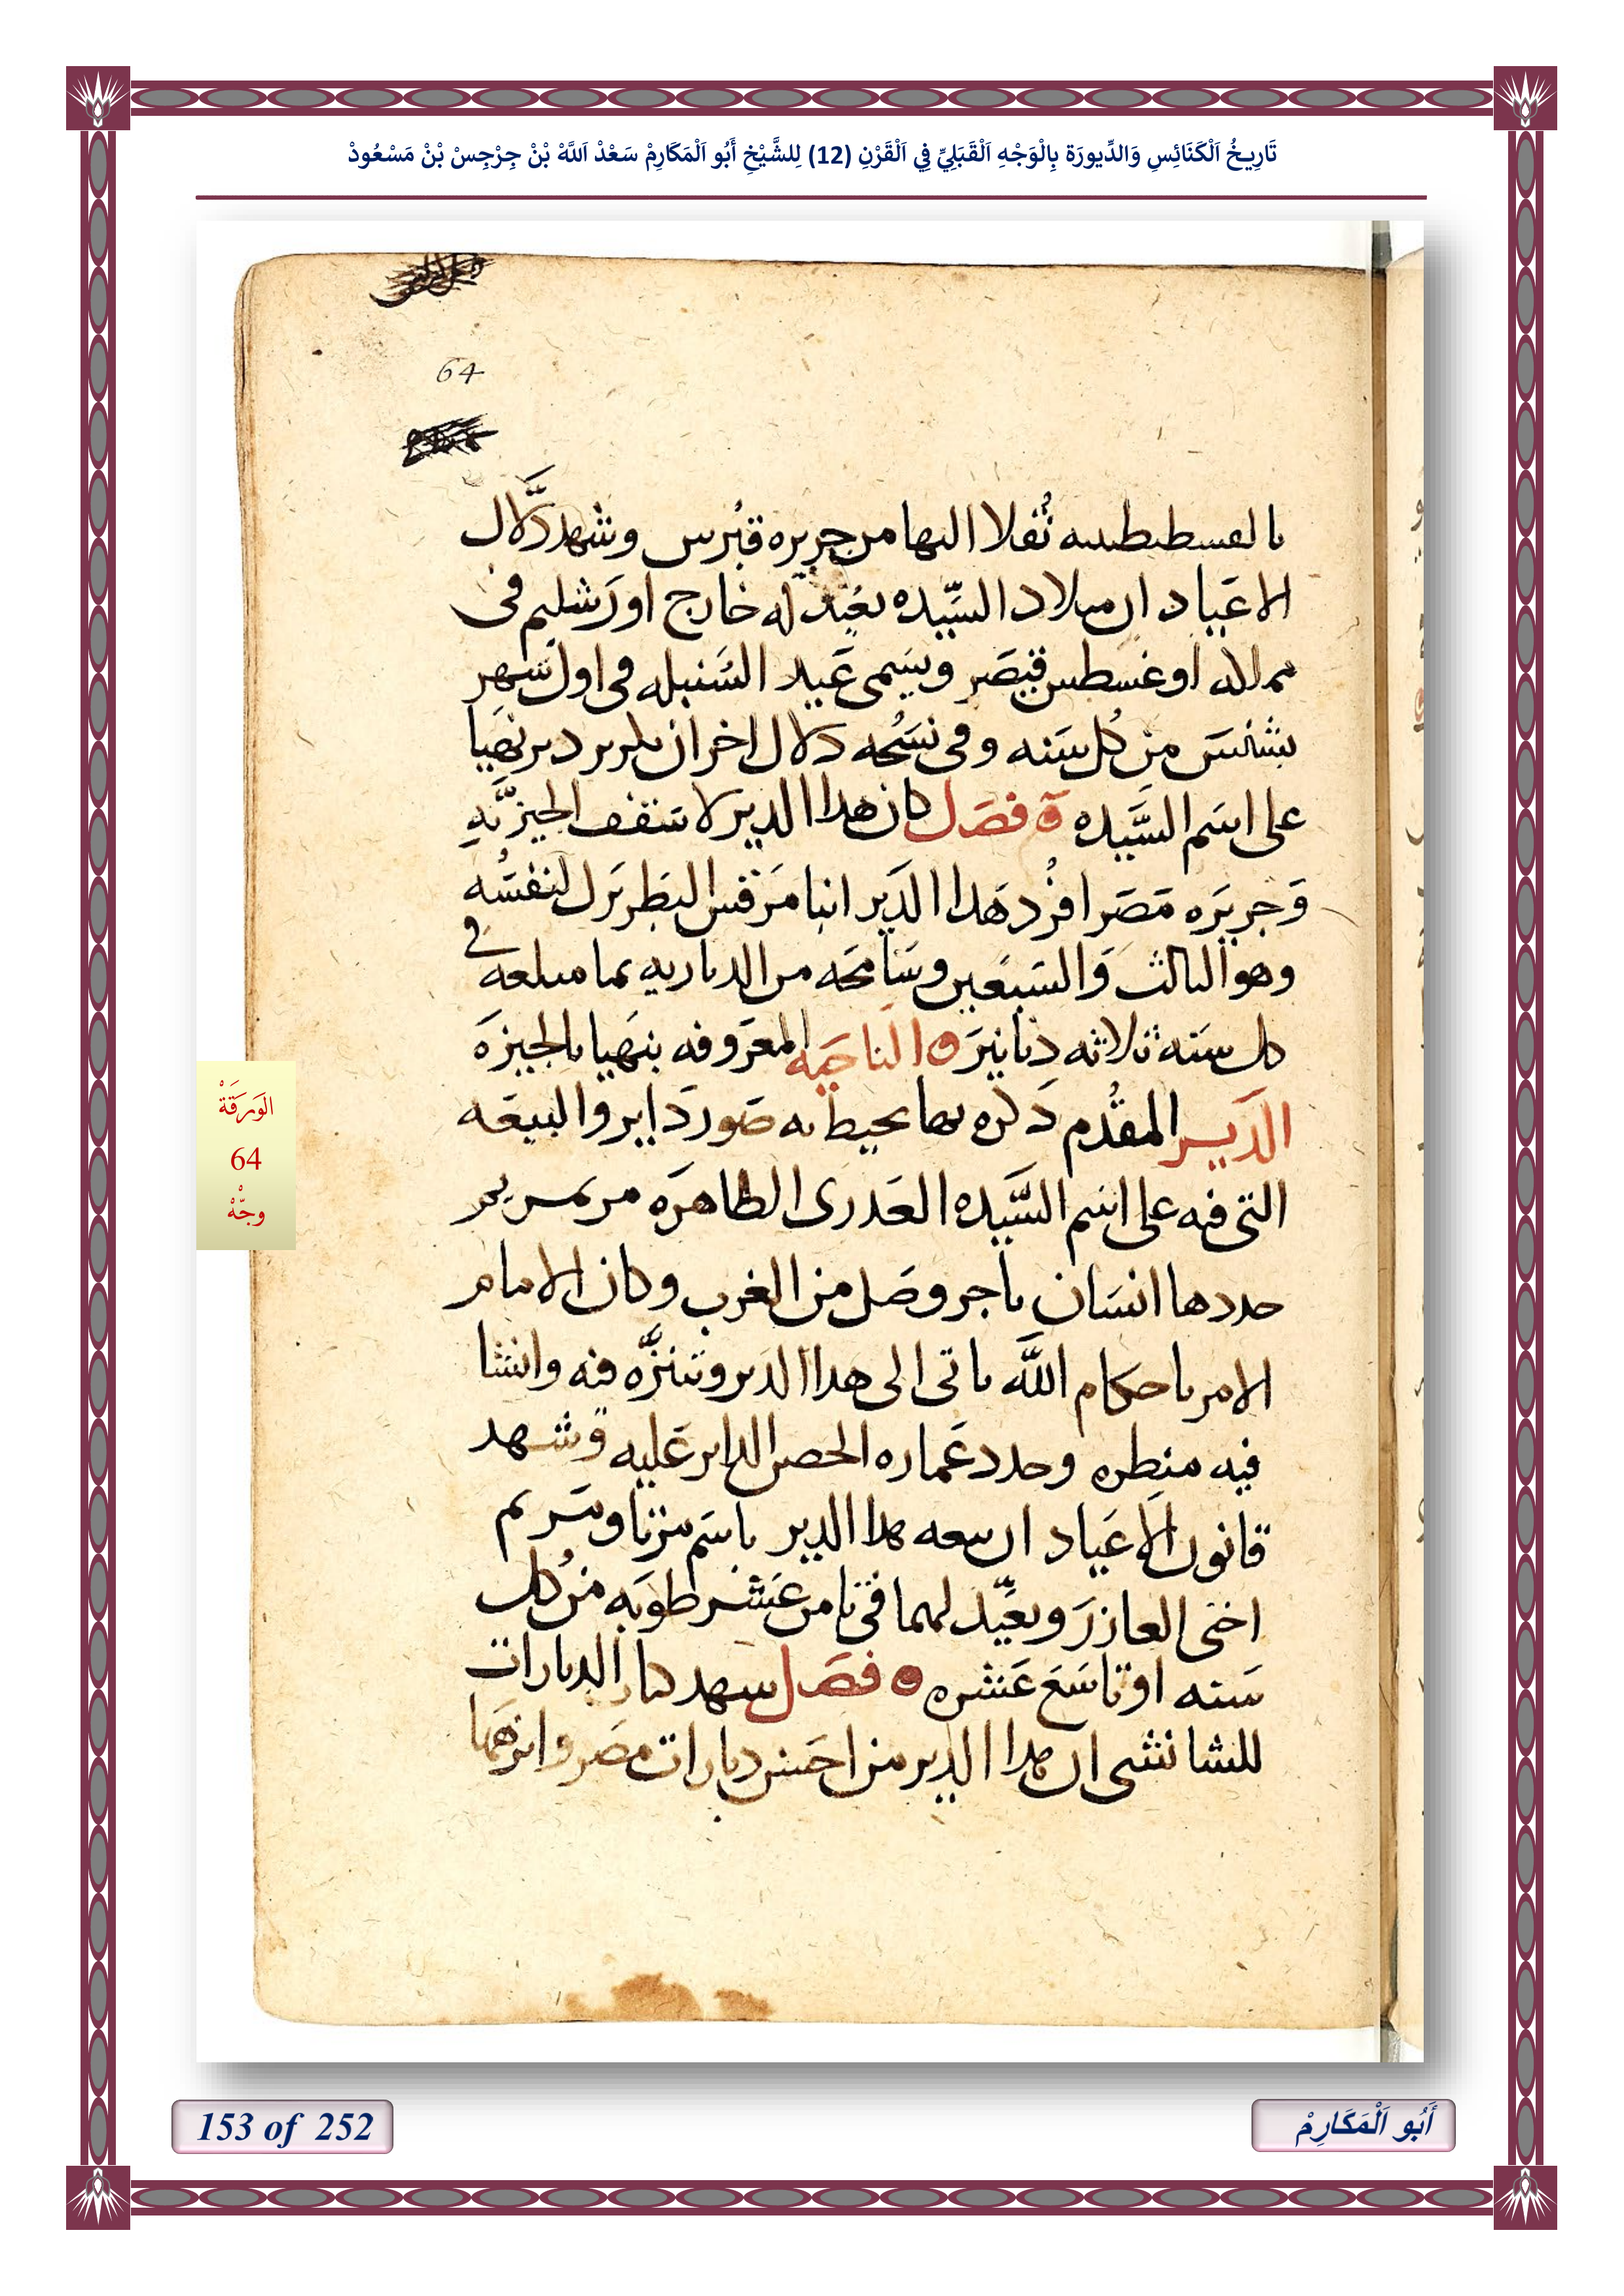 تَارِيخُ اَلْكَنَائِسِ وَالدِّيورَة بِالْوَجْهِ اَلْقَبَلِيِّ فِي اَلْقَرْنِ (12) لِلشَّيْخِ أَبُو اَلْمَكَارِمْ سَعْدْ اَللَّهْ بْنْ جِرْجِسْ بْنْ مَسْعُودْ
64
بالقسطنطينيه نُقلا اليها من جزيره قبُرس وشهد دَلال
الاعَياد ان ميلاد السيِّده يعُيد له خارج اورَشليم في
مملكه اوغسطس قيصَر ويسَمى عَيد السُنبله في اول شهر
بشنس من كُل سَنه وفي نسَخُه دلال اخر ان بكرير دير نهَيا
على اسَم السَّيده ۞ فصَل كان هدا الدير لاسَقف الجيزَّيه
وَجزيرَه مَصَر افرُد هَدا الدَير انبا مَرقس البَطريَرل لنفسَه
وهو الثالث وَالسَبعَين وسَامحَه من الدياريه بما مبلعه في
كل سَنه ثلاثه دنانيرَ ۞ الناحَيه المعَروفه بنهَيا بالجيزَه
الدَير المقدُم دَكره بها يحيط به صَور دَاير والبيعَه
التي فيه على اسَم السَّيده العَدرى الطاهرَه مرتمريم
جددها انسَان تاجر وصَل من الغرب وكان الامام
الامر باحكام اللَّه ياتى الى هدا الدير ويتنزَّه فيه وانشا
فيه منظره وجدد عَماره الحصن الداير عَليه وَشهد
قانون الاعَياد ان بيعه هدا الدير باسَم مرَتا ومَريم
اختى العازرَ ويعيَّد لهما في ثامن عَشر طوبَه من كُل
سَنه او تاسَعَ عَشره ۞ فصَل شهد كتاب الديارات
للشابشتى ان هدا الدير من احسَن ديارات مصَر وانزهَها
الوَرَقَةْ
64
وجّهْ
153 of 252
أَبُو اَلْمَكَارِمْ